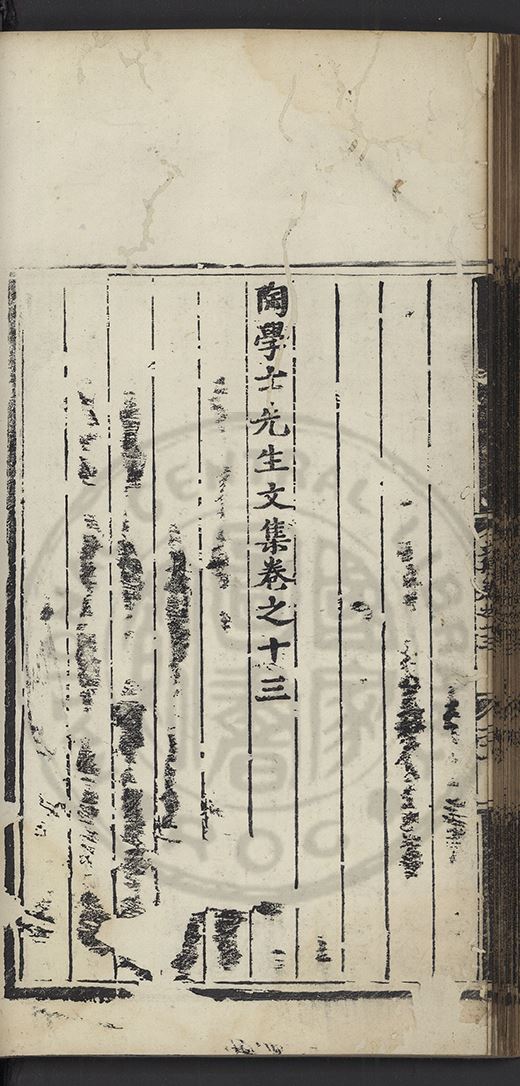 陶學士先生文集卷之十三